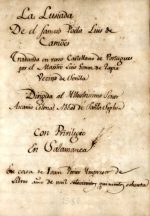 La Lusiada
De el famoso Poeta Luis de
Camões
Traduzida en verso Castellano de Portugues
por el Maestro Luis Gomez de Tapia
Vezino de Sevilla
Dirigida al Illustrissimo Señor
Ascanio Colona Abbad de
Con Privilegio
En Salamanca
En casa de Joan Perier Impressor de
Libros año de mil quinientos ochenta
1580